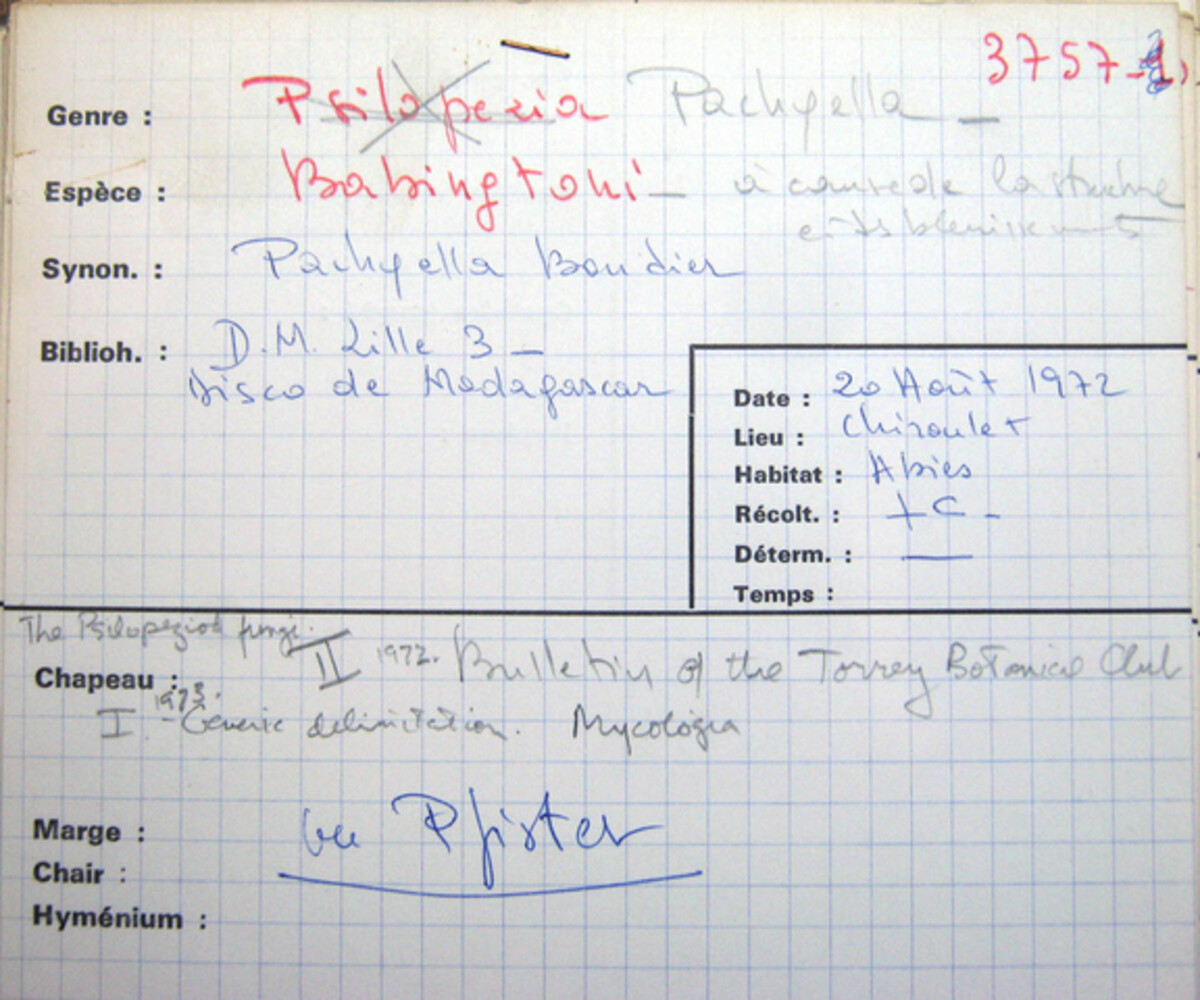 3757-
Genre : Psilopezia Pachyella -
Espèce : Babingtoni - à cause de la structure
et des bleuissements
Synon. : Pachyella Boudier
Biblioh. : D.M. Lille 3 -
Disco de Madagascar
Date : 20 Août 1972
Lieu : Chiroulet
Habitat : Abies
Récolt. : +C -
Déterm. : —
Temps :
The Psilopezioid fungi.
II 1972. Bulletin of the Torrey Botanical Club
Chapeau :
I. 1973. - Generic delimitation. Mycologia
Marge : vu Pfister
Chair :
Hyménium :